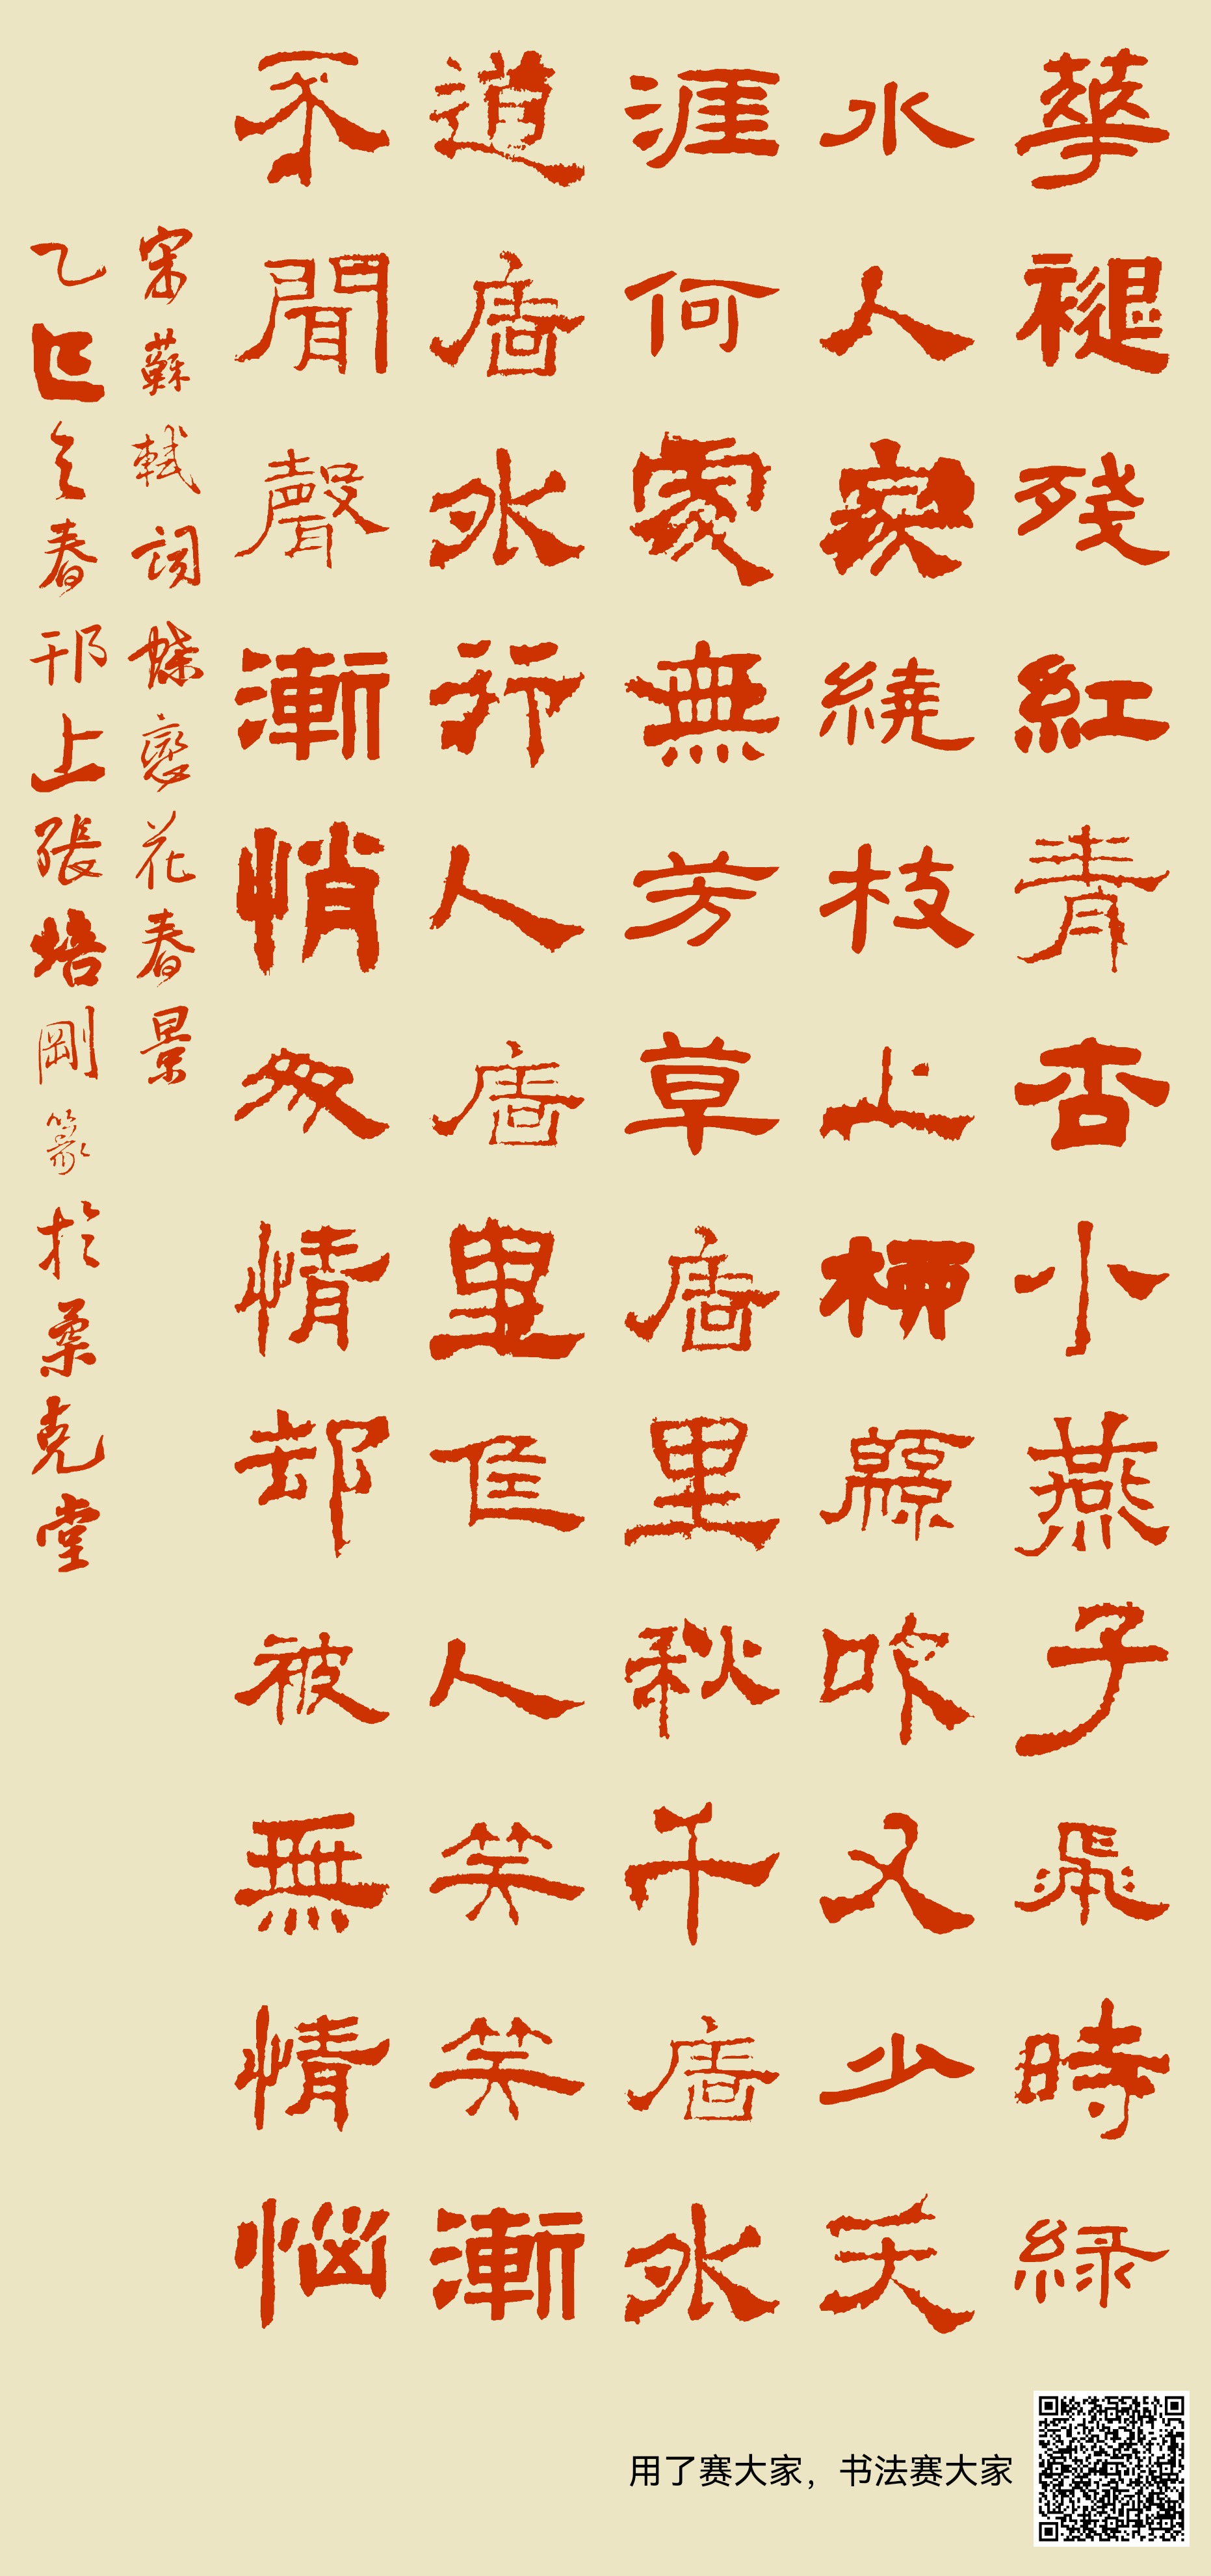 華褪殘紅青杏小燕子飛時綠
水人家繞枝上柳緜吹又少天
涯何處無芳草廧里秋千廧外
道廧外行人廧里佳人笑笑漸
不聞聲漸悄多情却被無情惱
宋蘇軾詞蝶戀花春景
乙巳之春邗上張培剛篆於柔克堂
用了赛大家，书法赛大家